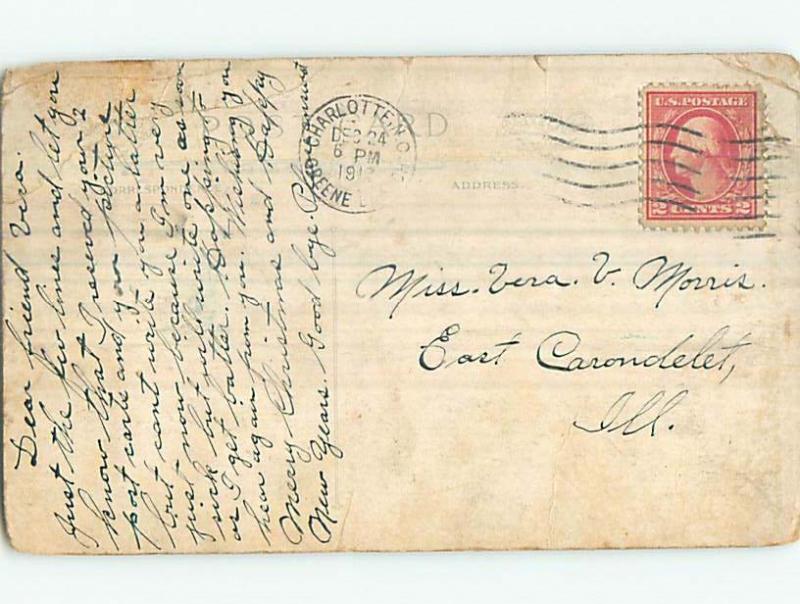 POST CARD
CORRESPONDENCE
ADDRESS
CHARLOTTE N.C.
DEC 24
6 PM
191
GREENE
U.S. POSTAGE
2 CENTS 2
Miss. Vera. V. Morris.
East Carondelet,
Ill.
Dear friend Vera.
Just the few lines and let you
know that I reseved your 2
post carts and your pecture
but cant write you a latter
just now because I'm very
sick but will write one as soon
as I get batter. Hopping to
hear again from you. Wishing you
Meery Christmas and Happy
New Years. Good bye.